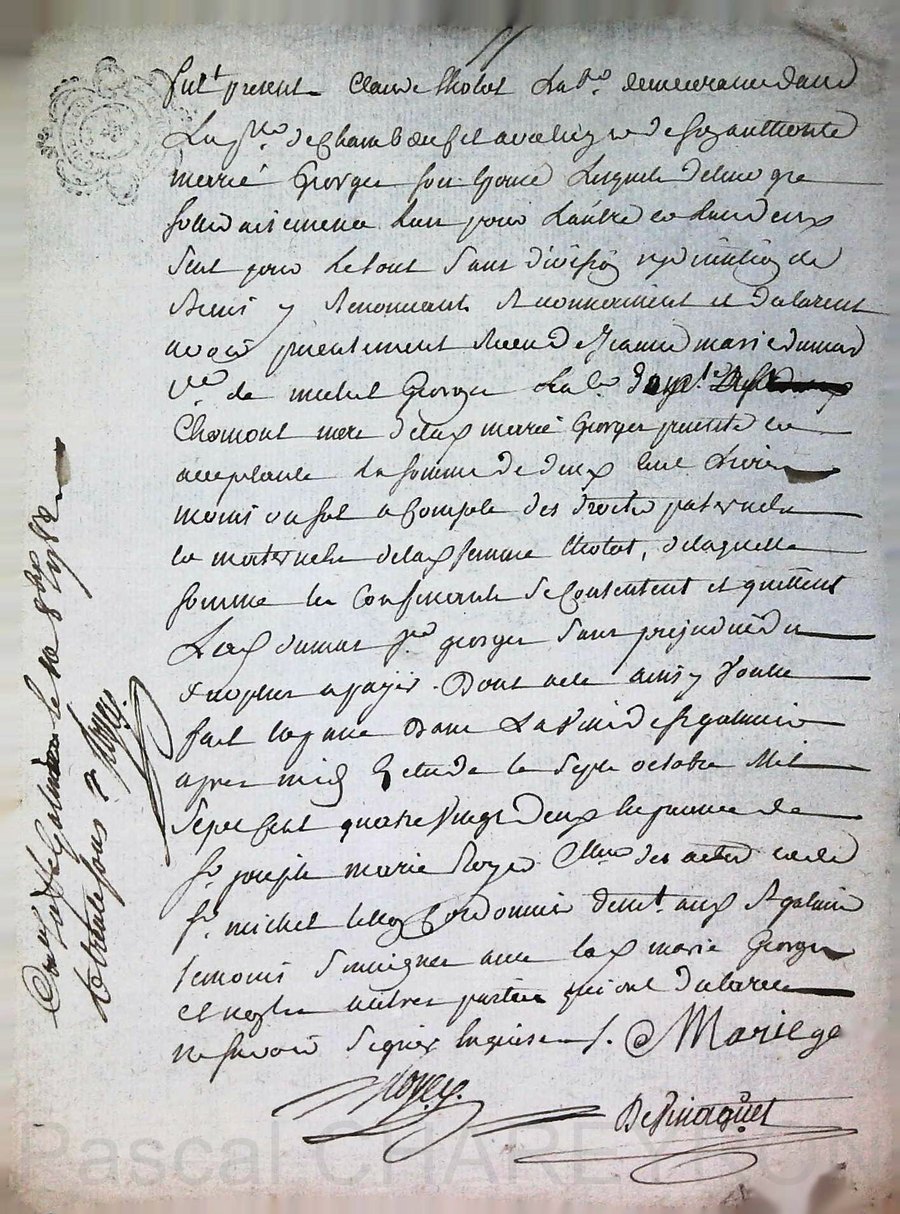 fut present Claude Cholet Lab.r demeurant dans
La p.sse de Chambœuf et avec luy de so authorité
marié Georges son Epouse Lesquels de leur gré
solidairement lun pour Lautre et lun deux
seul pour le tout sans division ny de
y Renonceants Reconnoissent et declarent
avoir presentement Receu de Jeanne marie dumas
V.ve de michel Georges La.r
Chamont mere de lad marié Georges presente et
acceptante La somme de deux cent Livres
moins un sol a Compte des droits paternels
et maternels de lad femme Cholet, de laquelle
somme les Confessants se Contentent et quittent
Lad dumas V.ve georges sans prejudice du
surplus a payer. Dont acte ainsy voulu
fait et passé dans La Ville de St galmier
apres midy Etude le sept octobre Mil
Sept Cent quatre Vingt deux En presence de
S.r joseph marie Royer des actes et de
S.r michel Cordonnier demt. aud St galmier
temoins Soussignes avec lad marie Georges
Et non les autres parties qui ont declaré
ne sçavoir signer Enquises ./. Marie ge
Royer.
DePinaguet
Con.lé a St Galmier le 18 8bre 1782
R. trente sous Royer
Pascal CHAREYRON